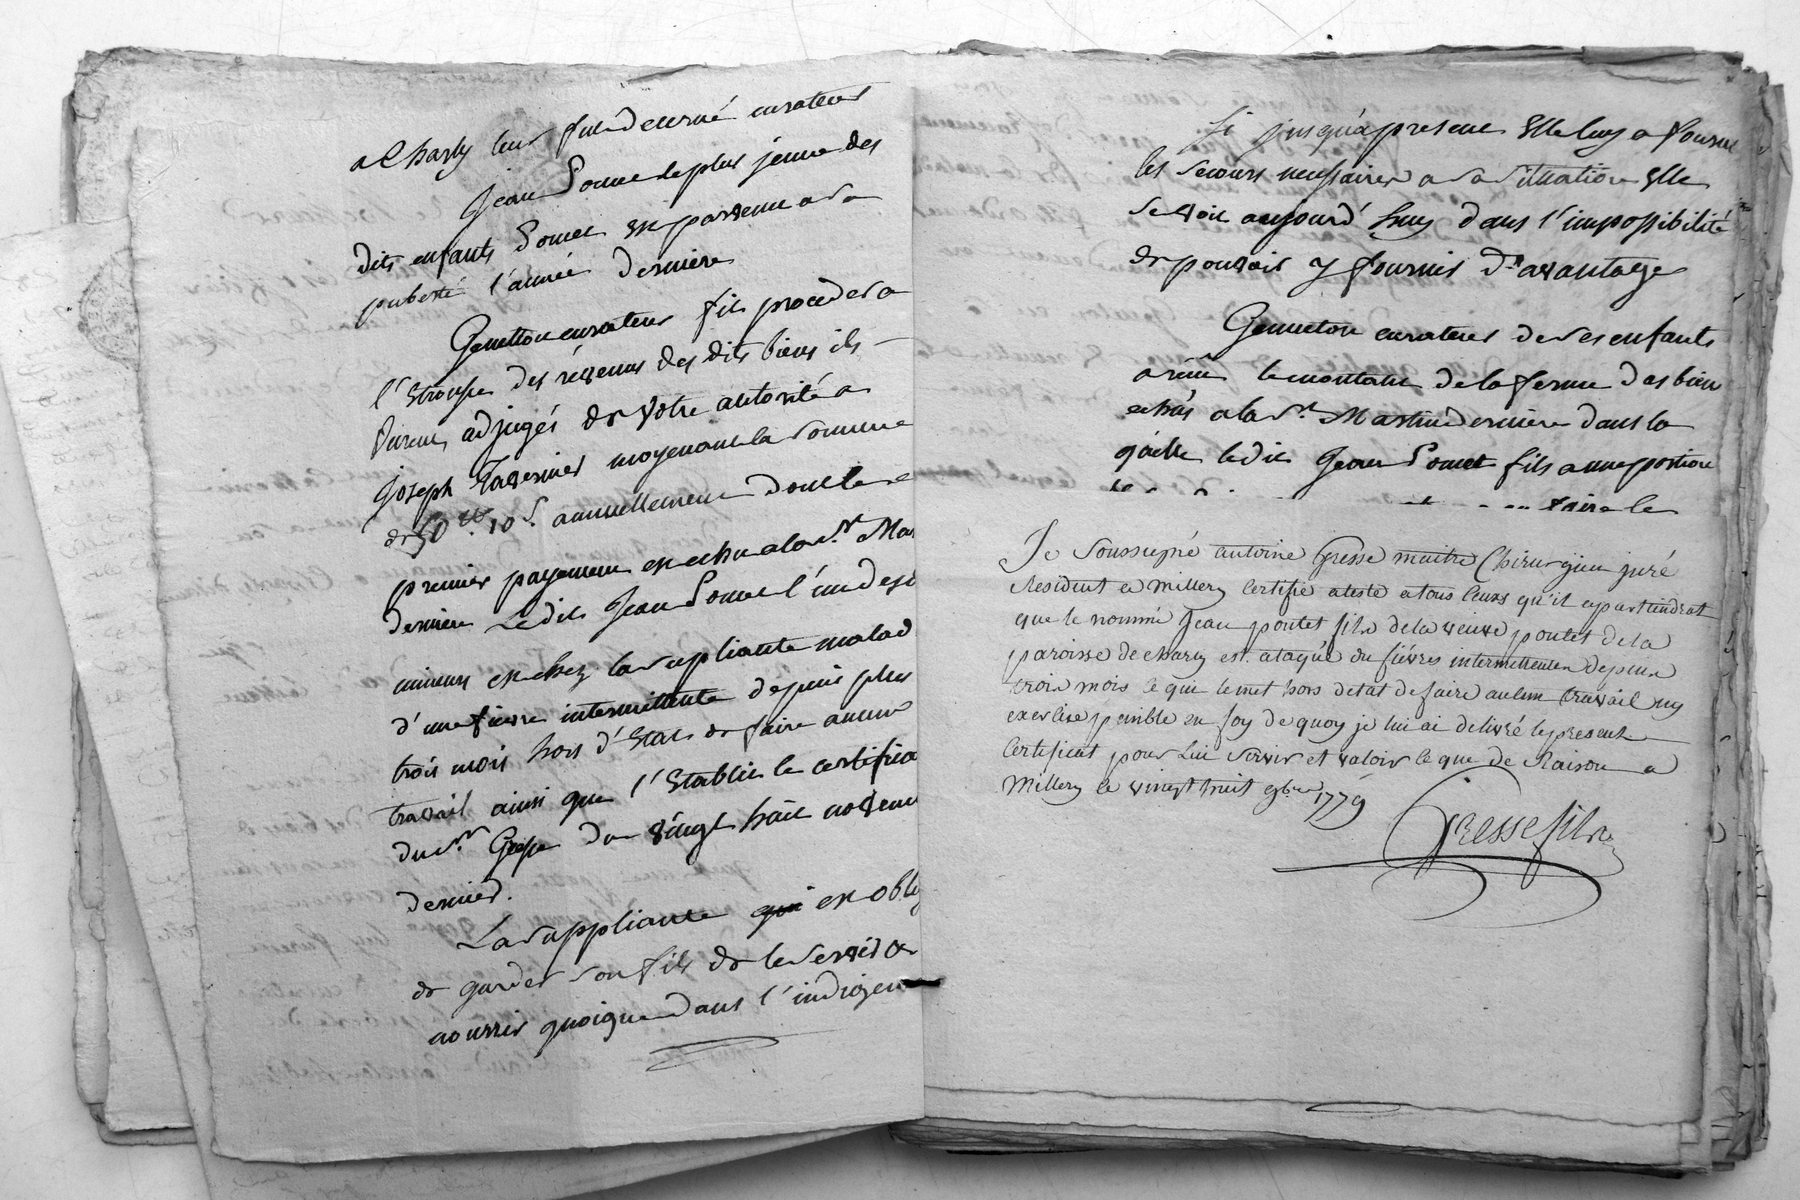 a Charly leur fut decerné curateur
Jean Pomet le plus jeune des
dits enfants Pomet est parvenu a sa
puberté l'année derniere
Genetton curateur fit proceder a
l'Etrousse des révenus des dits biens ils
furent adjugés de votre autorité a
Joseph Tavernier moyenant la somme
de 50 tt 10 s. annuellement dont le
premier payement est echu a la St. Mar
derniere Ledit Jean Pomet l'un des
mineurs est chez la supliante malad
d'une fievre intermittente depuis plus
trois mois hors d'Etat de faire aucun
travail ainsi que l'Etablit le certifica
du sr. Gresse du vingt huit novem
dernier.
La suppliante qui est oblig
de garder son fils de le servir &
nourrir quoique dans l'indigen
Si jusqu'a present Elle luy a fourni
les secours necessaires a sa situation Elle
se voit aujourd'huy dans l'impossibilité
de pouvoir y fournir d'avantage
Genneton curateur de ses enfants
a reçu le montant de la ferme des bien
echûs a la St. Martin derniere dans la
quelle ledit Jean Pomet fils a une portion
faire le
Je soussigné antoine Gresse maitre Chirurgien juré
Resident a millery Certifie ateste a tous ceux qu'il apartiendrat
que le nommé Jean poutet fils de la veuve poutet de la
paroisse de charly est ataqué du fiévres intermittentes depuis
trois mois ce qui le met hors d'etat de faire aucun travail ny
exercise penible en foy de quoy je lui ai delivré le present
Certificat pour lui servir et valoir ce que de Raison a
Millery le vingt huit 9bre 1779
Gresse fils